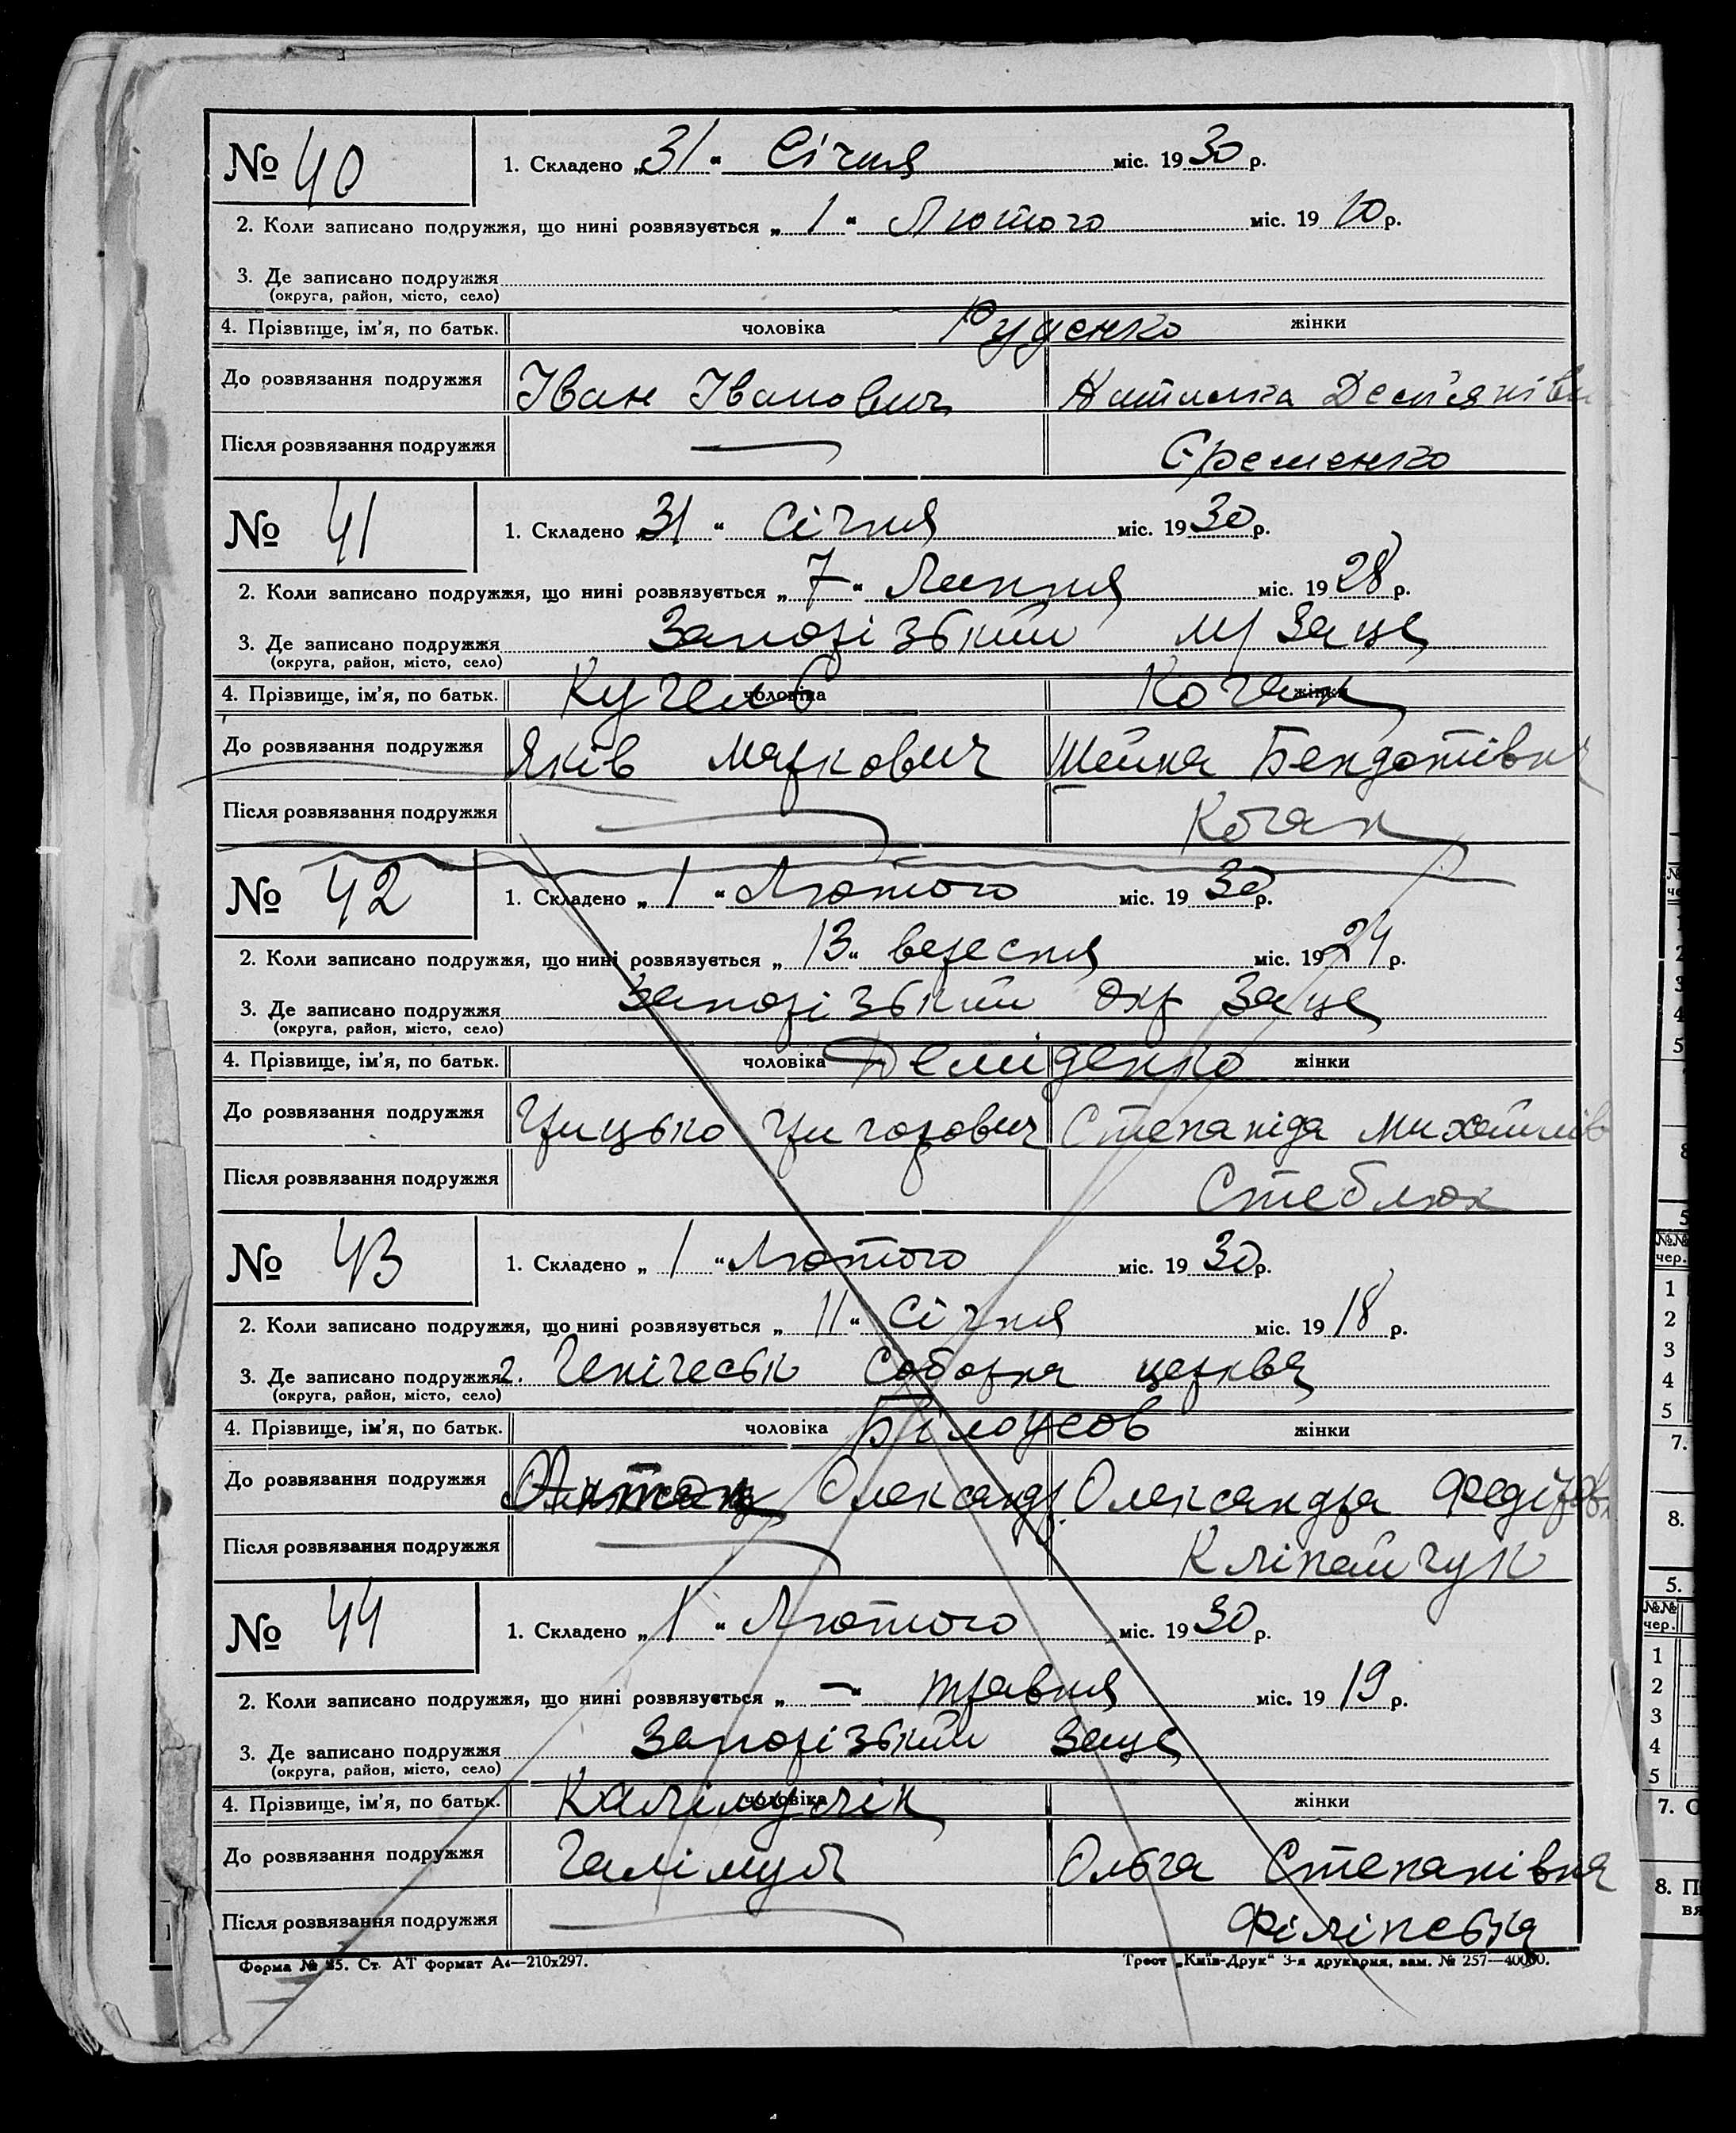 № 40
1. Складено „31“ Січня міс. 1930 р.
2. Коли записано подружжя, що нині розвязується „1“ Лютого міс. 1910 р.
3. Де записано подружжя
(округа, район, місто, село)
4. Прізвище, ім’я, по батьк. чоловіка Руденко жінки
До розвязання подружжя Іван Іванович
Після розвязання подружжя — Єременко
№ 41
1. Складено „31“ Січня міс. 1930 р.
2. Коли записано подружжя, що нині розвязується „7“ Липня міс. 1928 р.
3. Де записано подружжя Запорізький м/Загце
(округа, район, місто, село)
4. Прізвище, ім’я, по батьк. чоловіка Кочан жінки
До розвязання подружжя Яків Маркович Шейна
Після розвязання подружжя — Коган
№ 42
1. Складено „1“ Лютого міс. 1930 р.
2. Коли записано подружжя, що нині розвязується „13“ вересня міс. 1924 р.
3. Де записано подружжя Запорізький Окр Загце
(округа, район, місто, село)
4. Прізвище, ім’я, по батьк. чоловіка Демиденко жінки
До розвязання подружжя Грицько Григорович Степанида Михайлів
Після розвязання подружжя Стеблюк
№ 43
1. Складено „1“ Лютого міс. 1930 р.
2. Коли записано подружжя, що нині розвязується „11“ Січня міс. 1918 р.
3. Де записано подружжя г. Генічеськ Соборна церква
(округа, район, місто, село)
4. Прізвище, ім’я, по батьк. чоловіка Білоусов жінки
До розвязання подружжя Олександр. Олександра Федірівн
Після розвязання подружжя — Кліпайчук
№ 44
1. Складено „1“ Лютого міс. 1930 р.
2. Коли записано подружжя, що нині розвязується „—“ травня міс. 1919 р.
3. Де записано подружжя Запорізький Загце
(округа, район, місто, село)
4. Прізвище, ім’я, по батьк. чоловіка жінки
До розвязання подружжя Галімуб Ольга Степанівна
Після розвязання подружжя — Філіпська
Форма № 25. Ст. АТ формат А4—210х297. Трест „Київ-Друк“ 3-я друкарня, зам. № 257—40000.